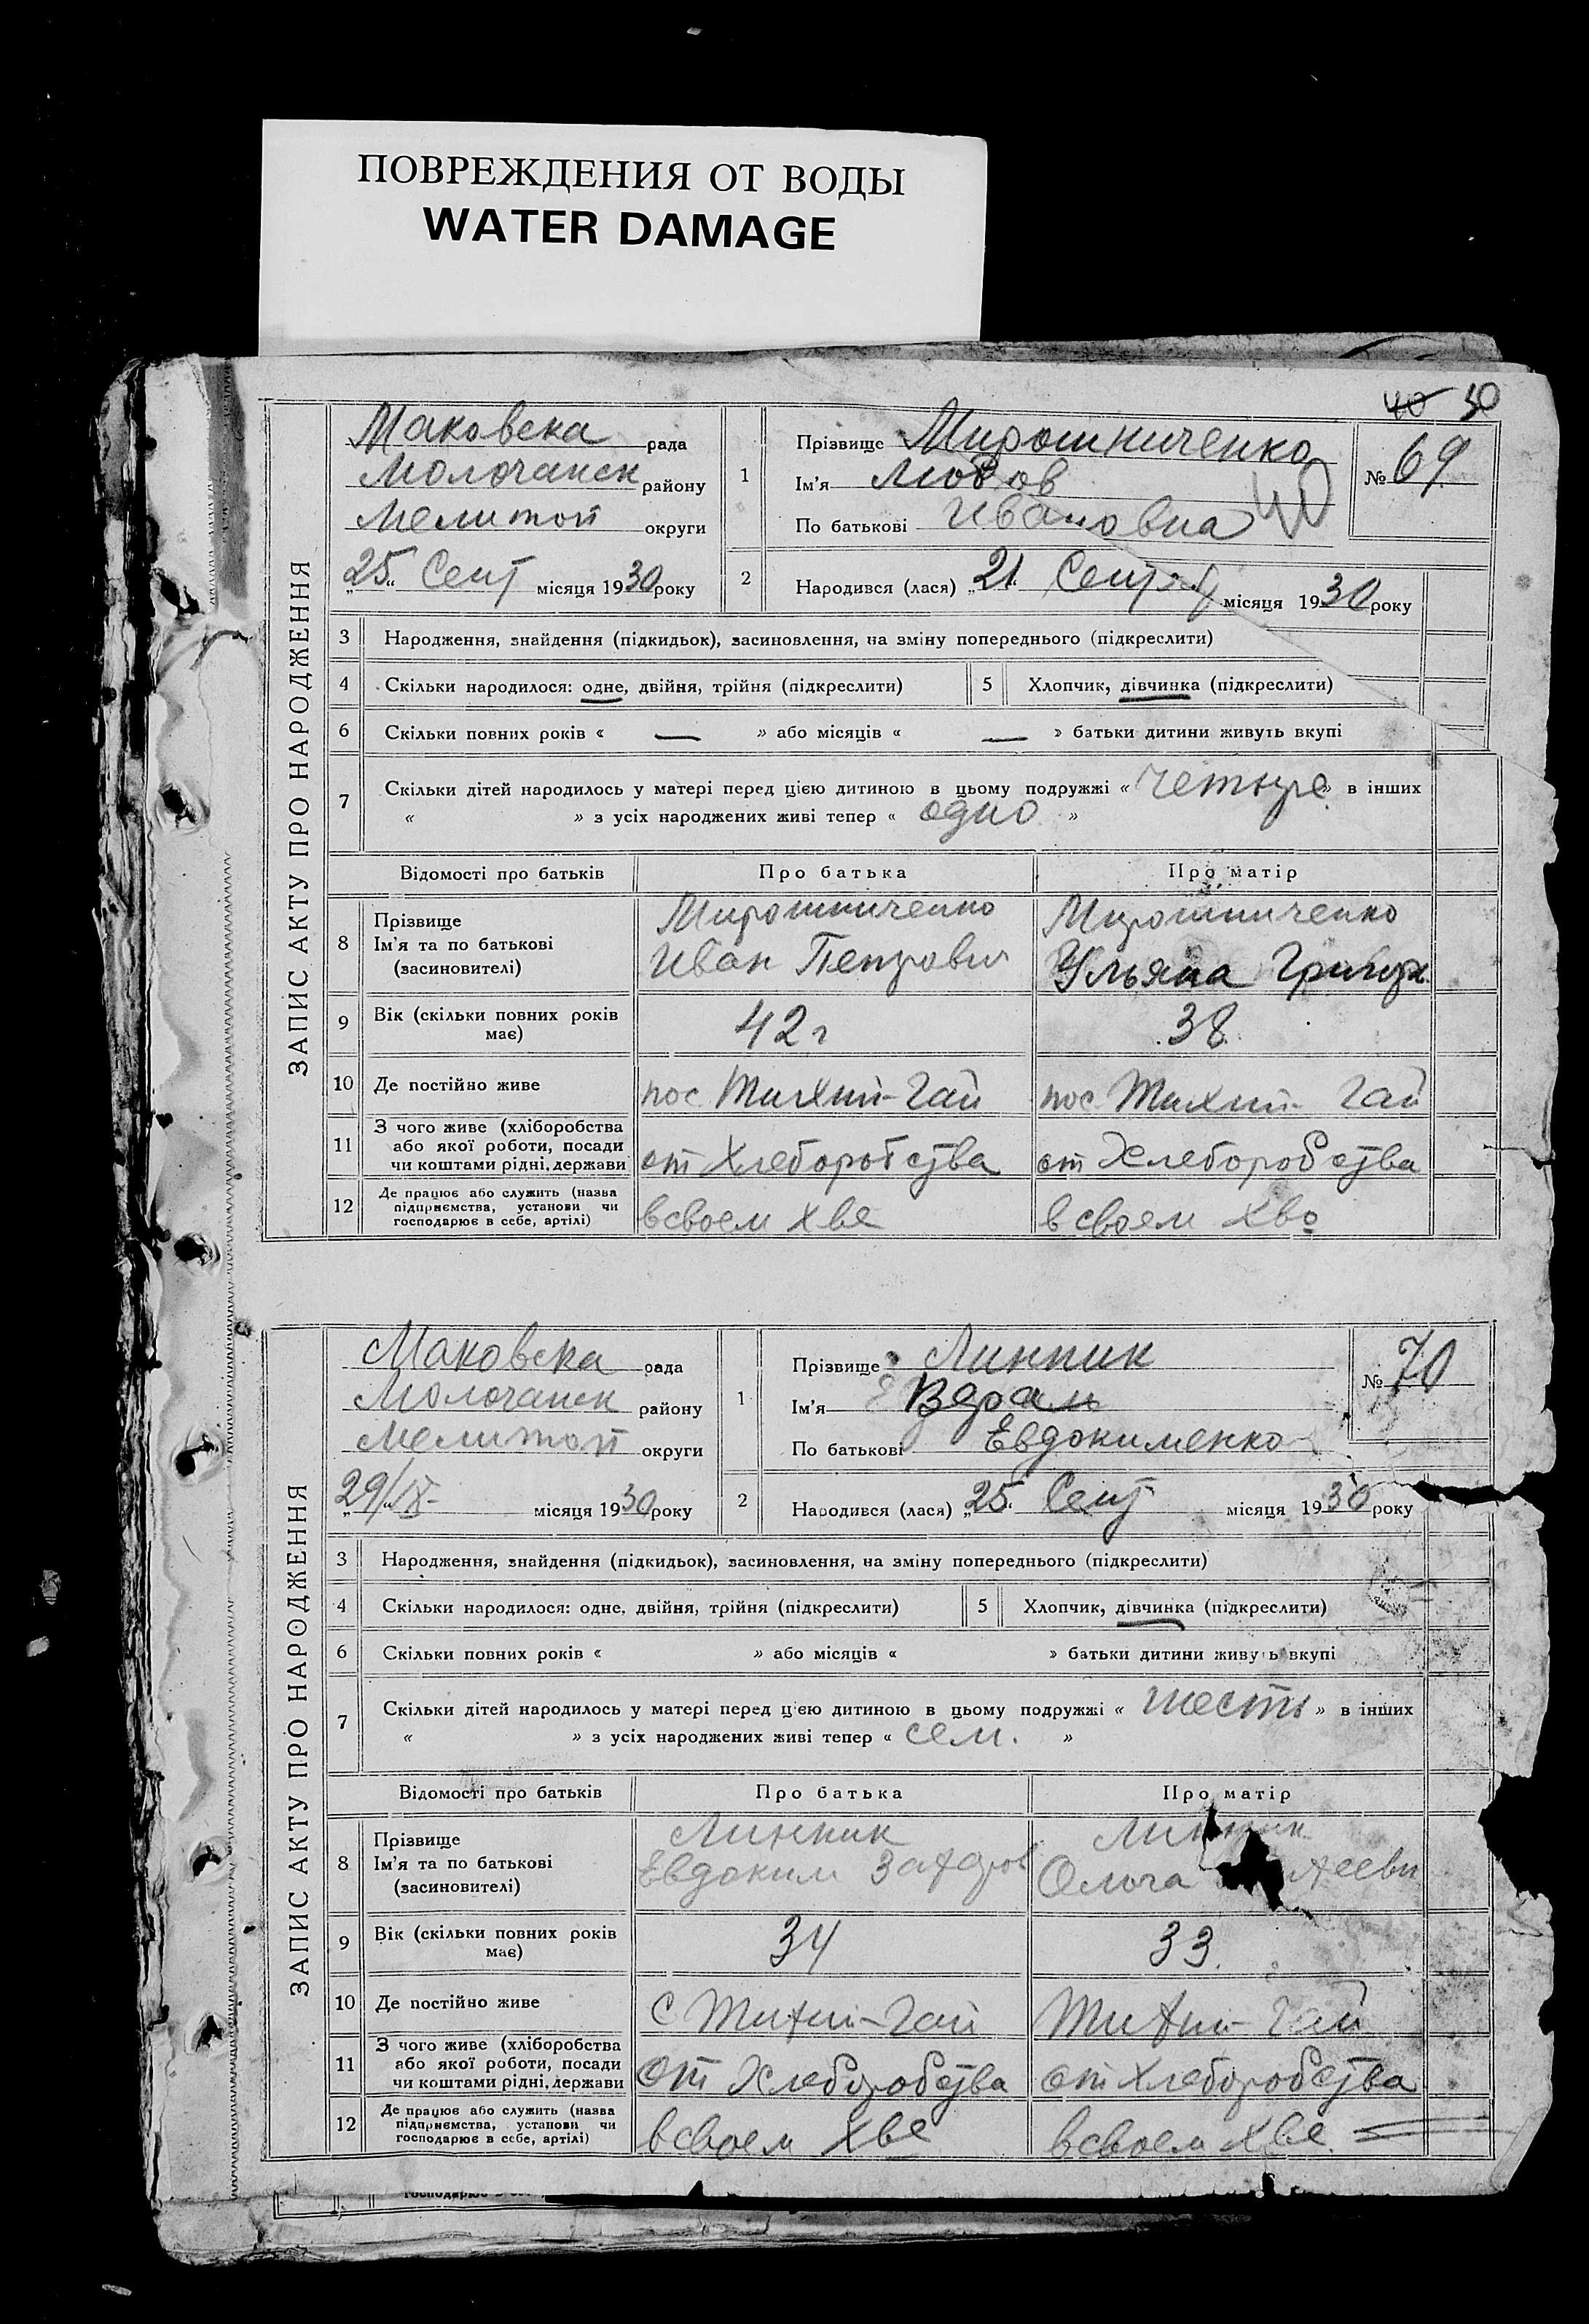 ПОВРЕЖДЕНИЯ ОТ ВОДЫ
WATER DAMAGE
40 50
ЗАПИС АКТУ ПРО НАРОДЖЕННЯ
Маковска рада
Молочанск району
Мелитоп округи
„25„ Сент місяця 1930 року
1 Прізвище Мирошниченко
Ім'я Любов
По батькові Ивановна
40
№ 69
2 Народився (лася) „21. Сент місяця 1930 року
3 Народження, знайдення (підкидьок), засиновлення, на зміну попереднього (підкреслити)
4 Скільки народилося: одне, двійня, трійня (підкреслити) 5 Хлопчик, дівчинка (підкреслити)
6 Скільки повних років « — » або місяців « — » батьки дитини живуть вкупі
7 Скільки дітей народилось у матері перед цією дитиною в цьому подружжі « четыре » в інших
« » з усіх народжених живі тепер « одно »
Відомості про батьків Про батька Про матір
8 Прізвище Ім'я та по батькові (засновителі)
Мирошниченко Мирошниченко
Иван Петрович Ульяна Григор.
9 Вік (скільки повних років має) 42 г 38.
10 Де постійно живе пос Тихий-Гай пос Тихий-Гай
11 З чого живе (хліборобства або якої роботи, посади чи коштами рідні, держави от Хлеборобства от Хлеборобства
12 Де працює або служить (назва підприємства, установи чи господарює в себе, артілі) в своем хве в своем хво
ЗАПИС АКТУ ПРО НАРОДЖЕННЯ
Маковска рада
Молочанск району
Мелитоп округи
„29/IX- місяця 1930 року
1 Прізвище Линник
Ім'я
По батькові Евдокименко
№ 70
2 Народився (лася) „25. Сент місяця 1930 року
3 Народження, знайдення (підкидьок), засиновлення, на зміну попереднього (підкреслити)
4 Скільки народилося: одне, двійня, трійня (підкреслити) 5 Хлопчик, дівчинка (підкреслити)
6 Скільки повних років « » або місяців « » батьки дитини живуть вкупі
7 Скільки дітей народилось у матері перед цією дитиною в цьому подружжі « шесть » в інших
« » з усіх народжених живі тепер « сем. »
Відомості про батьків Про батька Про матір
8 Прізвище Ім'я та по батькові (засиновителі)
Линник Линник
Евдоким Захаров Ольга
9 Вік (скільки повних років має) 34 33.
10 Де постійно живе с Тихий-Гай Тихий-Гай
11 З чого живе (хліборобства або якої роботи, посади чи коштами рідні, держави от Хлеборобства от Хлеборобства
12 Де працює або служить (назва підприємства, установи чи господарює в себе, артілі) в своем хве в своем хве